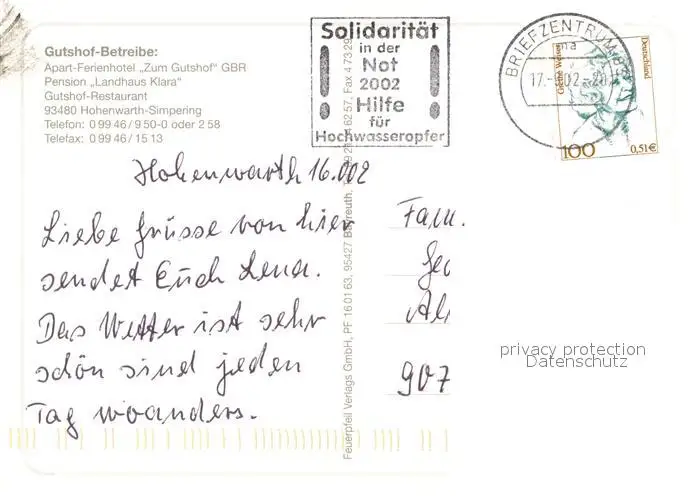 Gutshof-Betreibe:
Apart-Ferienhotel „Zum Gutshof" GBR
Pension „Landhaus Klara"
Gutshof-Restaurant
93480 Hohenwarth-Simpering
Telefon: 0 99 46 / 9 50-0 oder 2 58
Telefax: 0 99 46 / 15 13
Solidarität
in der
Not
2002
Hilfe
für
Hochwasseropfer
BRIEFZENTRUM
17.
02.-20
Deutschland
100
0,51€
Hohenwarth 16.002
Liebe Grüsse von hier
sendet Euch Lena.
Das Wetter ist sehr
schön sind jeden
Tag woanders.
Feuerpfeil Verlags GmbH, PF 16 01 63, 95427 Bayreuth,
62 57, Fax 4 73 29
Fam.
907
privacy protection
Datenschutz